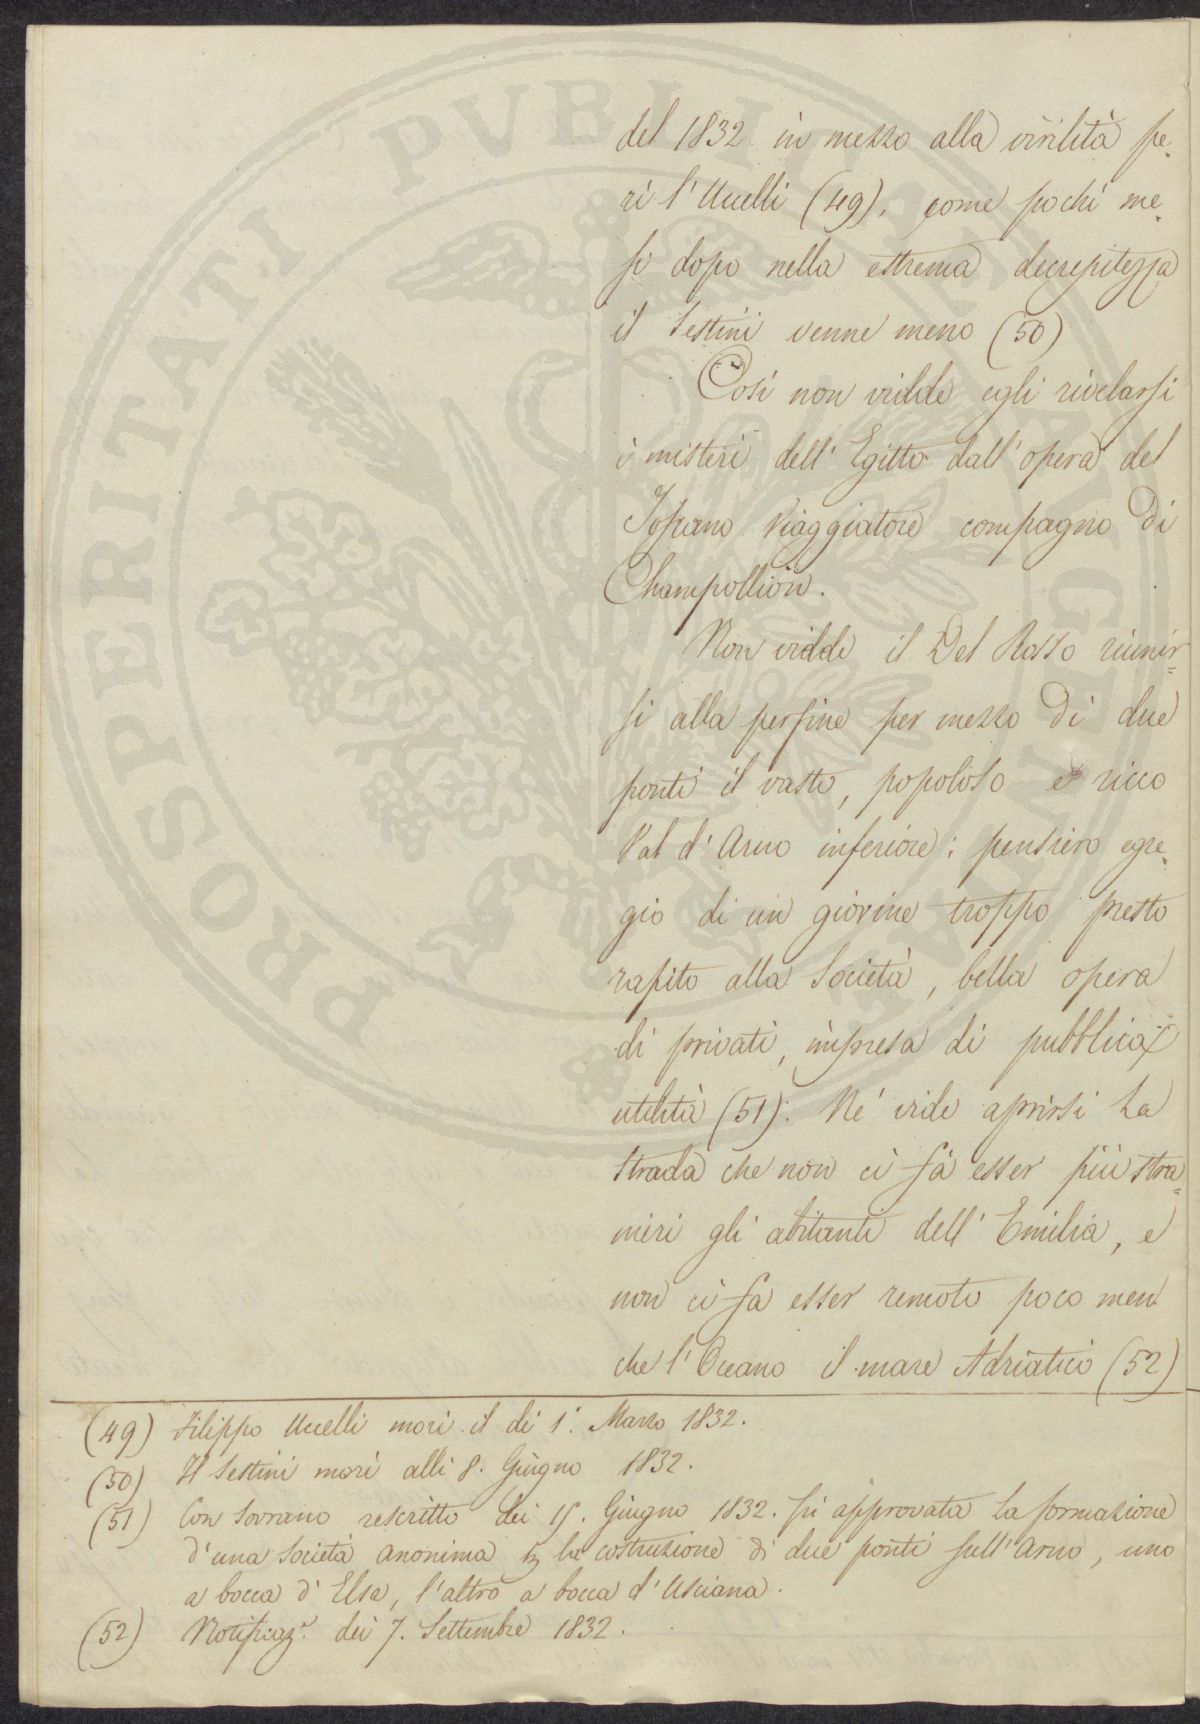 del 1832 in mezzo alla virilità pe-
rì l'Uccelli (49), come pochi me-
si dopo nella estrema decrepitezza
il Sestini venne meno (50)
Così non vidde egli rivelarsi
i misteri dell'Egitto dall'opera del
Toscano Viaggiatore compagno di
Champollion.
Non vidde il Del Rosso riunir=
si alla perfine per mezzo di due
ponti il vasto, popoloso e ricco
Val d'Arno inferiore; pensiero egre-
gio di un giovine troppo presto
rapito alla Società, bella opera
di privati, impresa di pubblica
utilità (51). Nè vide aprirsi la
strada che non ci fà esser più stra=
nieri gli abitanti dell'Emilia, e
non ci fa esser remoto poco men
che l'Oceano il mare Adriatico (52)
(49) Filippo Uccelli morì il dì 1. Marzo 1832.
(50) Il Sestini morì alli 8. Giugno 1832.
(51) Con Sovrano rescritto dei 15. Giugno 1832. fù approvata la formazione
d'una Società anonima la costruzione di due ponti sull'Arno, uno
a bocca d'Elsa, l'altro a bocca d'Usciana.
(52) Notificaz.e dei 7. Settembre 1832.
PROSPERITATI PVBLICAE AVGENDAE